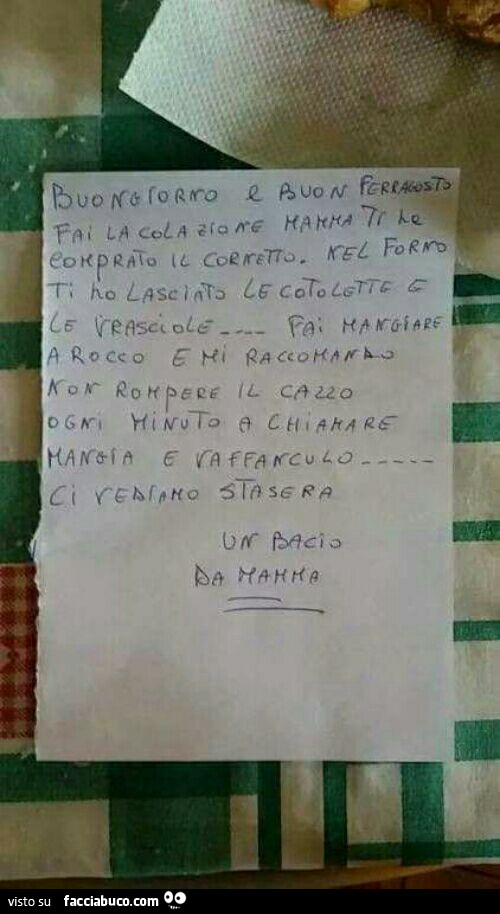 BUONGIORNO e BUON FERRAGOSTO
FAI LA COLAZIONE MAMMA TI ho
COMPRATO IL CORNETTO. NEL FORNO
TI ho LASCIATO LE COTOLETTE E
LE VRASCIOLE---- FAI MANGIARE
A ROCCO E MI RACCOMANDO
NON ROMPERE IL CAZZO
OGNI MINUTO A CHIAMARE
MANGIA E VAFFANCULO------
Ci VEDIAMO STASERA
UN BACIO
DA MAMMA
visto su facciabuco.com